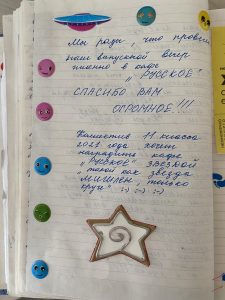 Мы рады, что провели
наш выпускной вечер
именно в кафе
„РУССКОЕ"
СПАСИБО ВАМ
ОГРОМНОЕ!!!
Коллектив 11 класса
2021 года хочет
наградить кафе
„РУССКОЕ" ЗВЕЗДОЙ
„такой как звезда
МИШЛЕН, только
круче" :-) :-) :-)